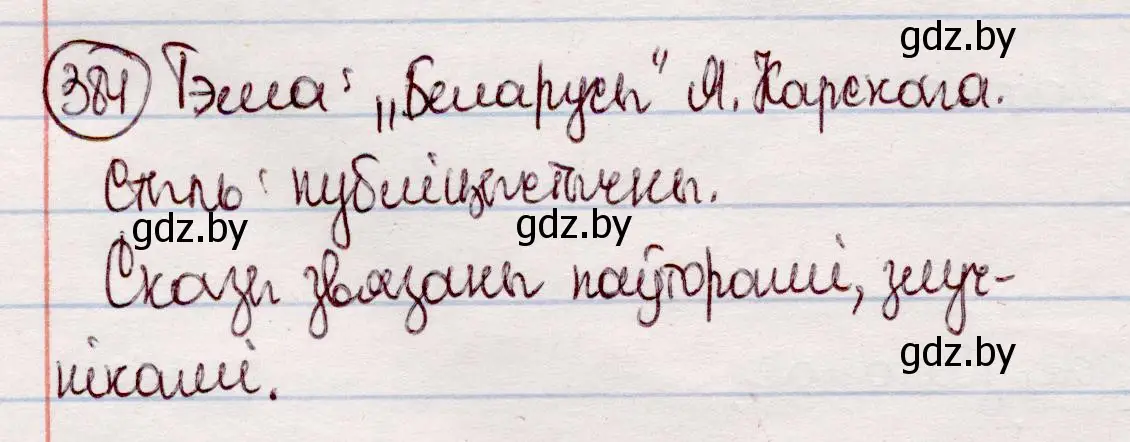 gdz.by
384 Тэма: „Беларусы" Я. Карскага.
Стыль: публіцыстычны.
gdz.by gdz.by
Сказы звязаны паўторамі, злуч-
gdz.by
нікамі.